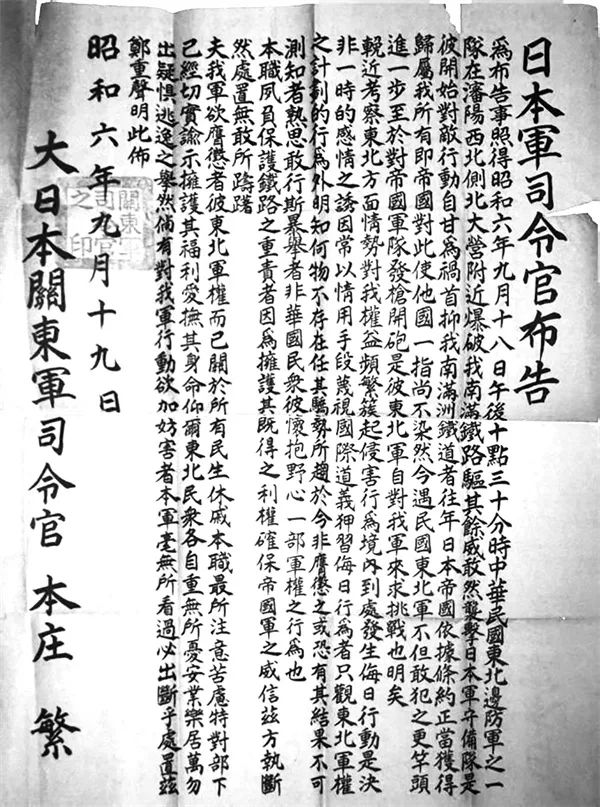 日本軍司令官布告
為布告事照得昭和六年九月十八日午後十點三十分時中華民國東北邊防軍之一
隊在瀋陽西北側北大營附近爆破我南滿鐵路驅其餘威敢然襲擊日本軍守備隊是
彼開始對敵行動自甘為禍首抑我南滿洲鐵道者往年日本帝國依據條約正當獲得
歸屬我所有即帝國對此使他國一指尚不染然今遇民國東北軍不但敢犯之更竿頭
進一步至於對帝國軍隊發槍開砲是彼東北軍自對我軍來求挑戰也明矣
輓近考察東北方面情勢對我權益頻繁簇起侵害行為境內到處發生侮日行動是決
非一時的感情之誘因常以情用手段蔑視國際道義狎習侮日行為者只觀東北軍權
之計劃的行為外明知何物不存在任其驕勢所趨於今非膺懲之或恐有其結果不可
測知者熟思敢行斯暴舉者非華國民衆彼懷抱野心一部軍權之行為也
本職夙負保護鐵路之重責者因為擁護其既得之利權確保帝國軍之威信茲方執斷
然處置無敢所躊躇
夫我軍欲膺懲者彼東北軍權而已關於所有民生休戚本職最所注意苦慮特對部下
已經切實諭示擁護其福利愛撫其身命仰爾東北民衆各自重無所憂安業樂居萬勿
出疑惧逃逸之舉然倘有對我軍行動欲加妨害者本軍毫無所看過必出斷乎處置茲
鄭重聲明此佈
昭和六年九月十九日
關東
司官
之印
大日本關東軍司令官 本庄繁